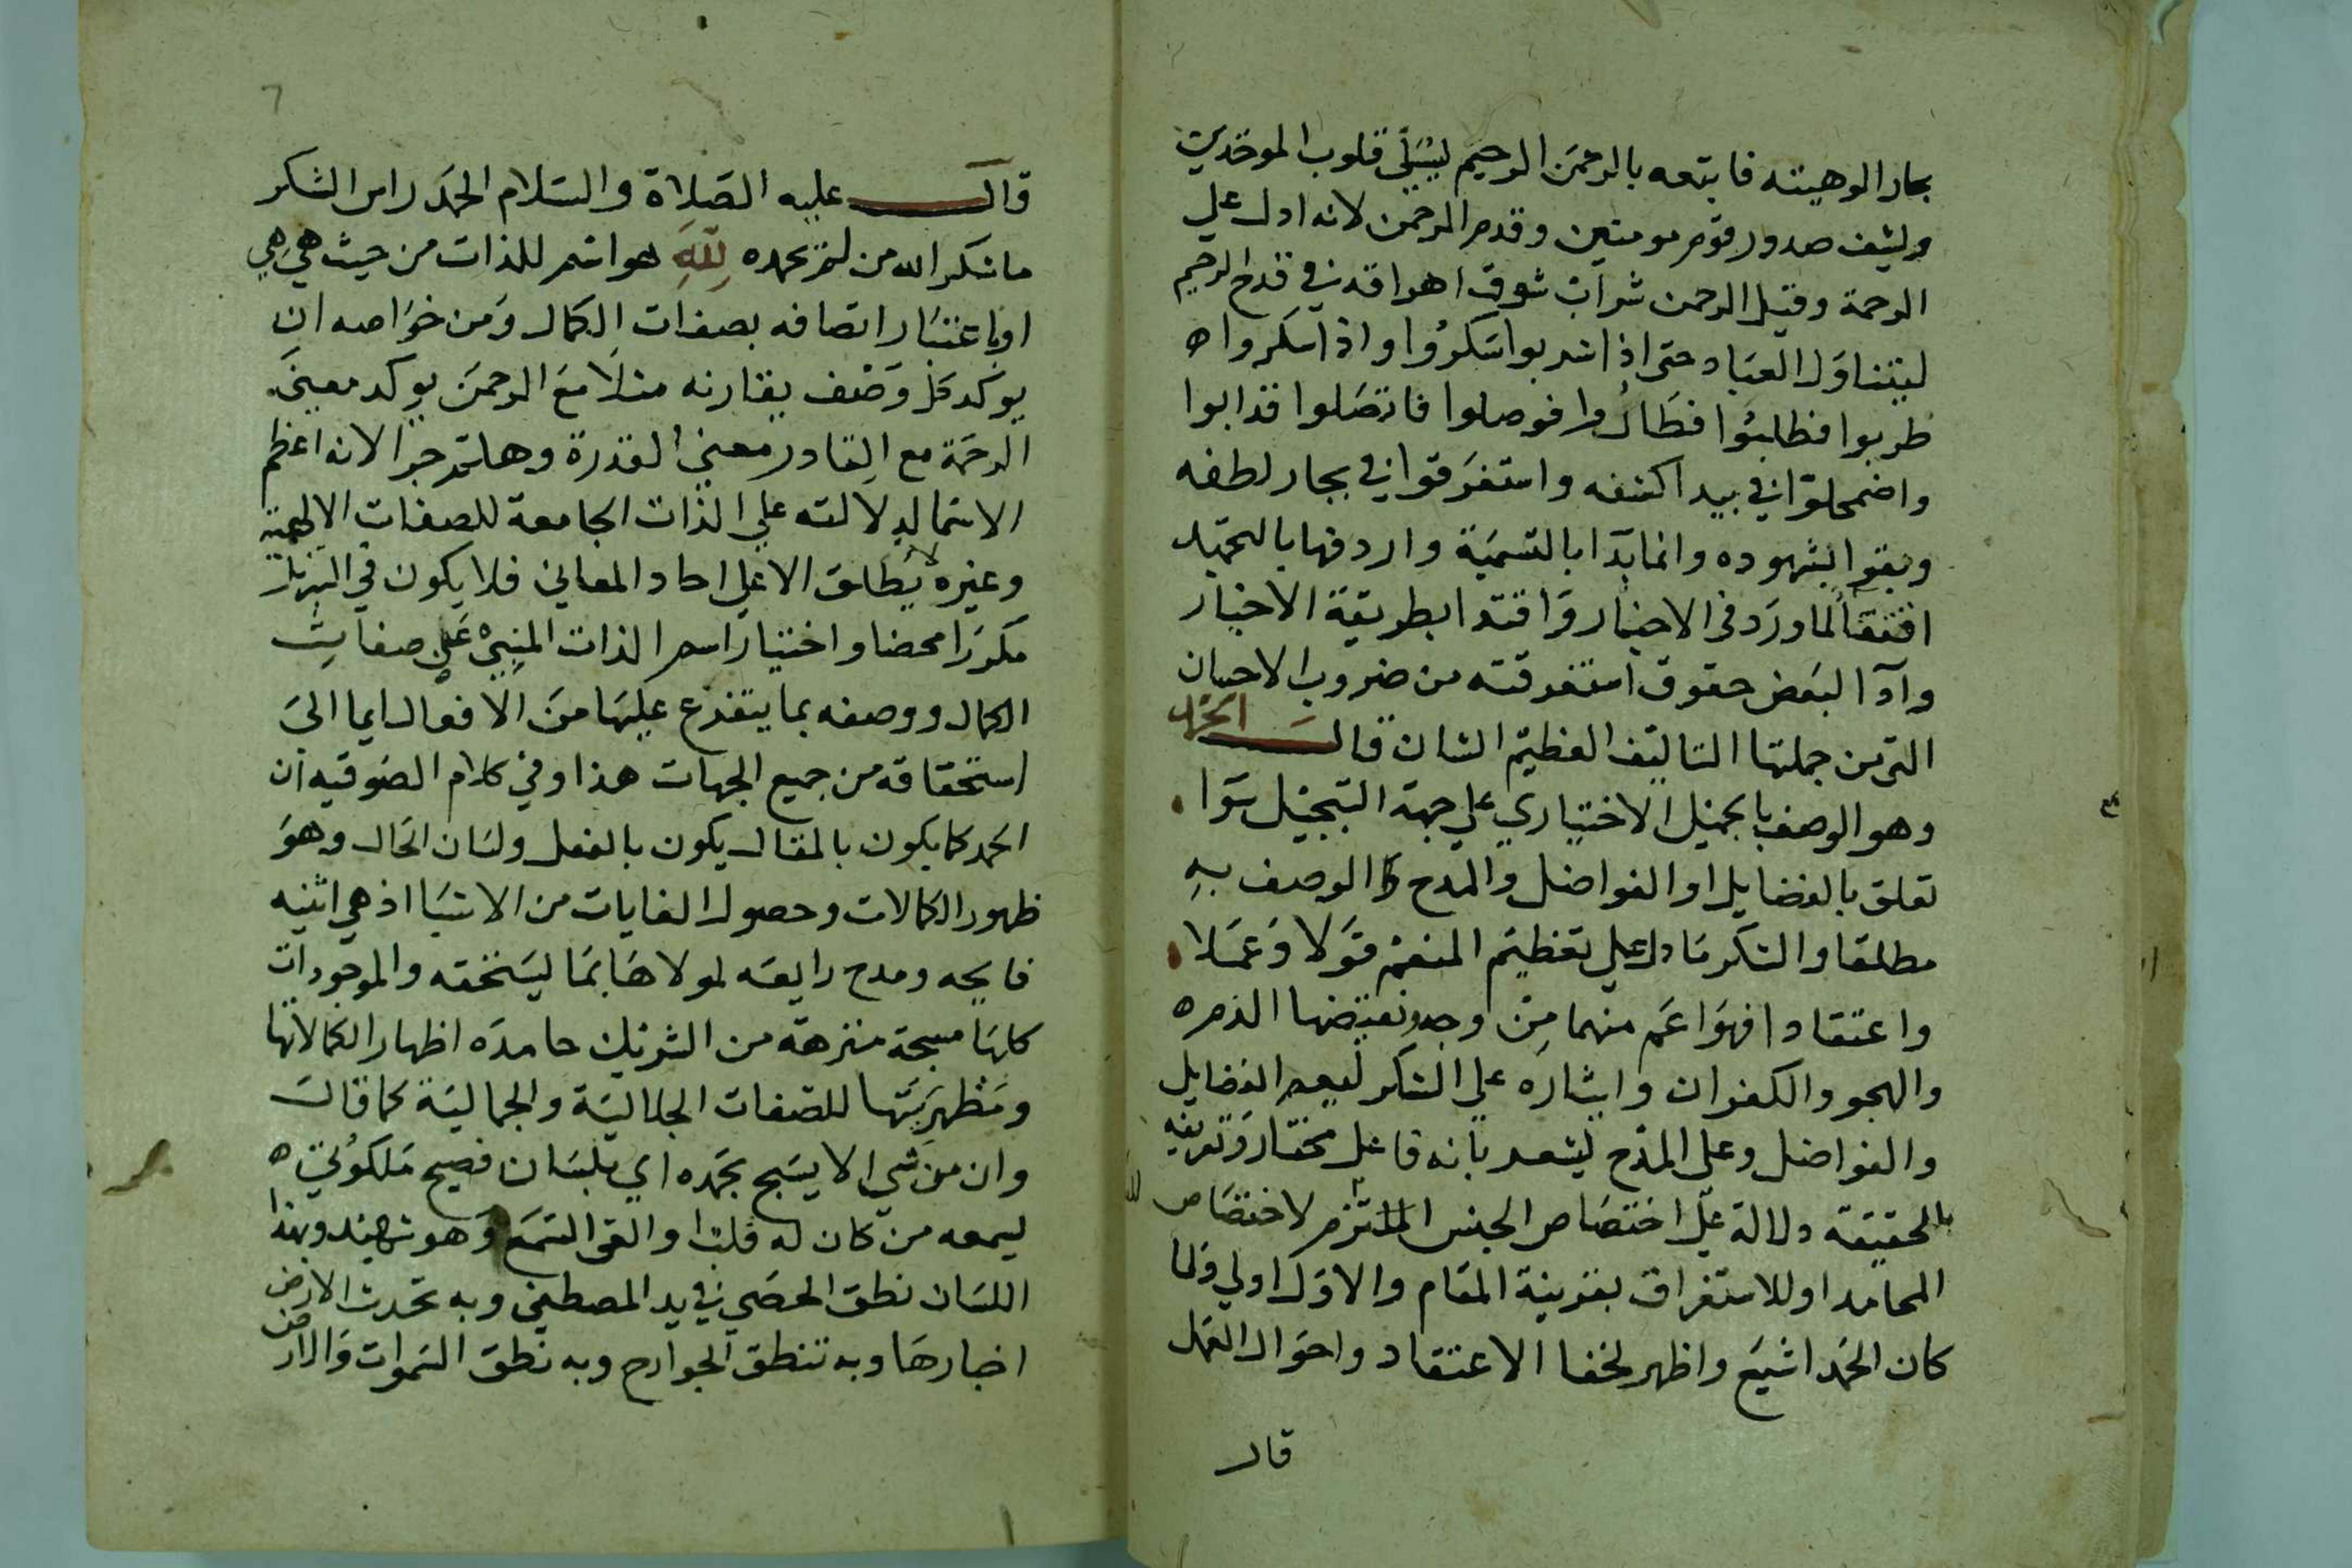 بحار الوهيته فاتبعه بالرحمن الرحيم ليسلي قلوب الموحدين
وليشف صدور قوم مومنين وقدم الرحمن لانه ادل علي
الرحمة وقيل الرحمن شراب شوق اهراقه في قدح الرحيم
ليتناول العباد حتى اذا شربوا سكروا واذا سكروا
طربوا فطلبوا فطاروا فوصلوا فاتصلوا فذابوا
واضمحلوا في بيدا كشفه واستغرقوا في بحار لطفه
وبقوا بشهوده وانما بدا بالتسمية واردفها بالتحميد
اقتفا لما ورد في الاخبار واقتدا بطريقة الاخيار
وادا لبعض حقوق استغرقته من ضروب الاحسان
التي من جملتها التاليف العظيم الشان قال الحمد
وهو الوصف بالجميل الاختياري علي جهة التبجيل سوا
تعلق بالفضايل او الفواضل والمدح الوصف به
مطلقا والشكر ما دل علي تعظيم المنعم قولا وعملا
واعتقادا فهو اعم منهما من وجه ونقيضها الذم
والهجو والكفران وايثاره علي الشكر ليعم الفضايل
والفواضل وعلى المدح ليشعر بانه فاعل مختار وتعريفه
بالحقيقة دلالة علي اختصاص الجنس الملتزم لاختصاص
المحامد او للاستغراق بقرينة المقام والاول اولي ولما
كان الحمد اشيع واظهر لخفا الاعتقاد واحوال العمل
قال
٦
قال عليه الصلاة والسلام الحمد راس الشكر
ما شكر الله من لم يحمده لله هو اسم للذات من حيث هي هي
او باعتبار اتصافه بصفات الكمال ومن خواصه ان
يوكد كل وصف يقارنه مثلا مع الرحمن يوكد معنى
الرحمة مع القادر معني القدرة وهلم جرا لانه اعظم
الاسما لدلالته علي الذات الجامعة للصفات الالهية
وغيره لا يطلق الا علي احاد المعاني فلا يكون في التنزيل
مكررا محضا واختيار اسم الذات المنبئ علي صفات
الكمال ووصفه بما يتفرع عليها من الافعال ايما الى
استحقاقه من جميع الجهات هذا وفي كلام الصوفيه ان
الحمد كما يكون بالمقال يكون بالفعل ولسان الحال وهو
ظهور الكمالات وحصول الغايات من الاشيا اذ هي اثنيه
فايحه ومدح رايعه لمولاها بما يستحقه والموجودات
كلها مسبحة منزهة من الشريك حامده اظهار الكمالاتها
ومظهريتها للصفات الجلالية والجمالية كما قال
وان من شي الا يسبح بحمده اي بلسان فصيح ملكوتي
ليسمعه من كان له قلب او القى السمع وهو شهيد وبهذا
اللسان نطق الحصي في يد المصطفي وبه تحدث الارض
اخبارها وبه تنطق الجوارح وبه نطق السموات والارض